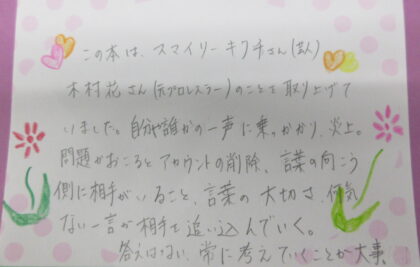 この本は、スマイリーキクチさん(芸人)
木村花さん(元プロレスラー)のことを取り上げて
いました。自分が誰かの一声に乗っかかり、炎上。
問題がおこるとアカウントの削除、言葉の向こう
側に相手がいること、言葉の大切さ、何気
ない一言が相手を追い込んでいく。
答えはない、常に考えていくことが大事。